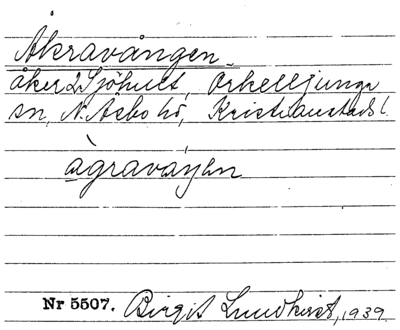 Åkravången.
åker 2 Sjöhult, Örkelljunga
sn, N. Åsbo hd, Kristianstads l.
àgraváŋen
Nr 5507. Birgit Lundkvist, 1939.